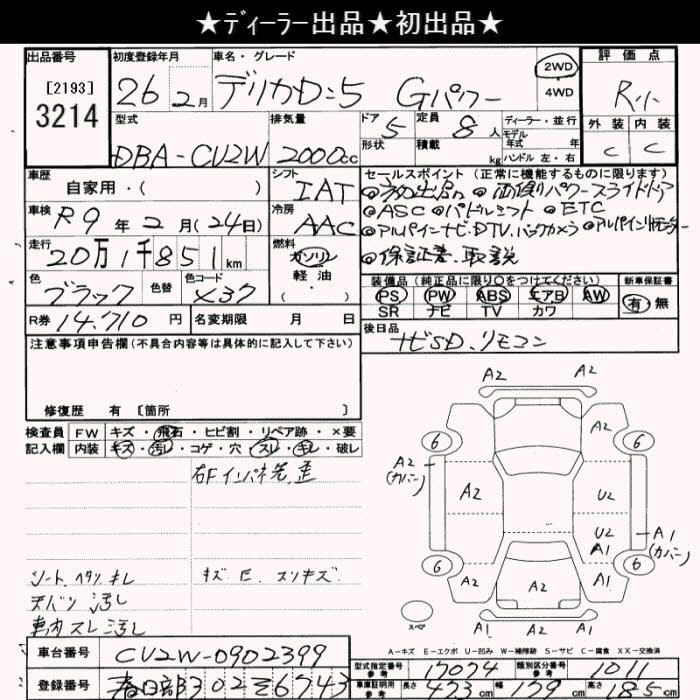 ★ディーラー出品★初出品★
出品番号
[2193]
3214
初度登録年月
26 2月
車名・グレード
デリカD:5 Gパワー
2WD
4WD
評価点
R
型式
DBA-CU2W
排気量
2000cc
ドア 5
形状
定員 8人
積載 kg
ディーラー・並行
モデル
年式 年
ハンドル 左・右
外装 内装
C C
車歴
自家用・( )
シフト
IAT
セールスポイント (正常に機能するものに限ります)
◎初出品 ◎両側パワースライドドア
◎ASC ◎パドルシフト ◎ETC
◎アルパインナビ、DTV、バックカメラ ◎アルパイン後モニター
◎保証書、取説
車検
R9年2月(24日)
冷房
AAC
走行
20万1千851km
燃料
ガソリン
軽油・
色
ブラック
色替
色コード
X37
装備品 (純正品に限り○をつけてください)
PS PW ABS エアB AW
SR ナビ TV カワ
新車保証書
有 無
R券 14,710円
名変期限 月 日
後日品
ナビSD、リモコン
注意事項申告欄 (不具合内容等は具体的に記入して下さい)
修復歴 有 [箇所 ]
検査員
記入欄
FW キズ・飛石・ヒビ割・リペア跡・×要
内装 キズ・汚レ・コゲ・穴・スレ・キレ・破レ
右Fインパネ先歪
シートヘタリ キレ
キズ E スリキズ
天バリ汚し
車内スレ汚し
A2 A2
6 A2 6
A2
(カバー)
A2 U2
U2
A1
A1
(カバー)
6 A2 A2 A1 6
スペア
A1 A2 A1
A-キズ E-エクボ U-凹み W-補修跡 S-サビ C-腐食 XX-交換済
車台番号 CU2W-0902399
型式指定番号 参考 17074
類別区分番号 参考 1011
登録番号 春日部302 そ6743
車庫証明用 参考 長さ 473cm 幅 179cm 高さ 185cm